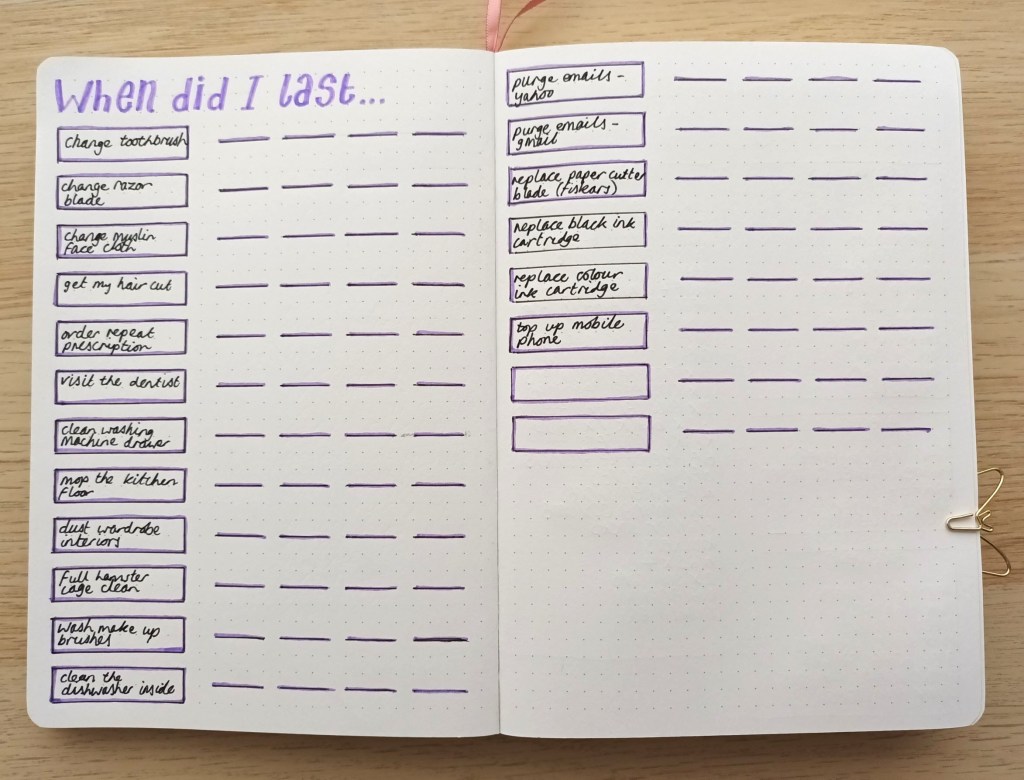 When did I last...
change toothbrush
change razor
blade
change muslin
face cloth
get my hair cut
order repeat
prescription
visit the dentist
clean washing
machine drawer
mop the kitchen
floor
dust wardrobe
interiors
full hamster
cage clean
wash make up
brushes
clean the
dishwasher inside
purge emails -
yahoo
purge emails -
gmail
replace paper cutter
blade (fiskars)
replace black ink
cartridge
replace colour
ink cartridge
top up mobile
phone